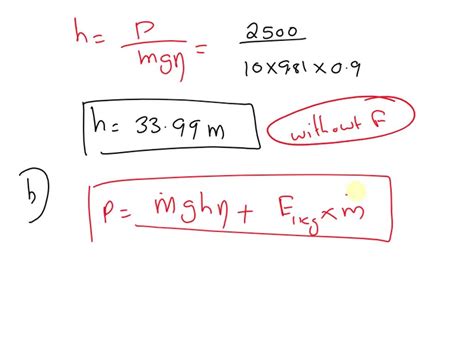 h = P / mgη = 2500 / 10×981×0.9
h = 33.99 m
without F
b)
P = ṁghη + E1kg × ṁ